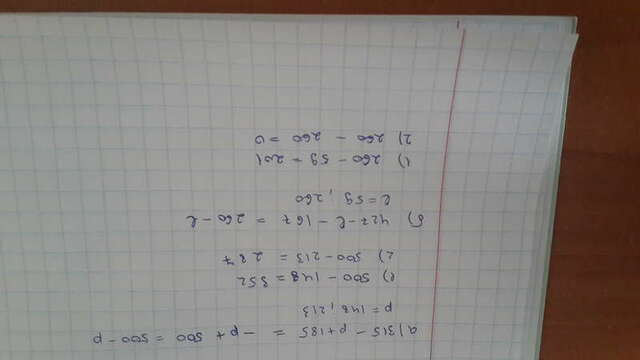 а) 315 - p + 185 = -p + 500 = 500 - p
p = 148, 213
1) 500 - 148 = 352
2) 500 - 213 = 287
б) 427 - l - 167 = 260 - l
l = 59, 260
1) 260 - 59 = 201
2) 260 - 260 = 0